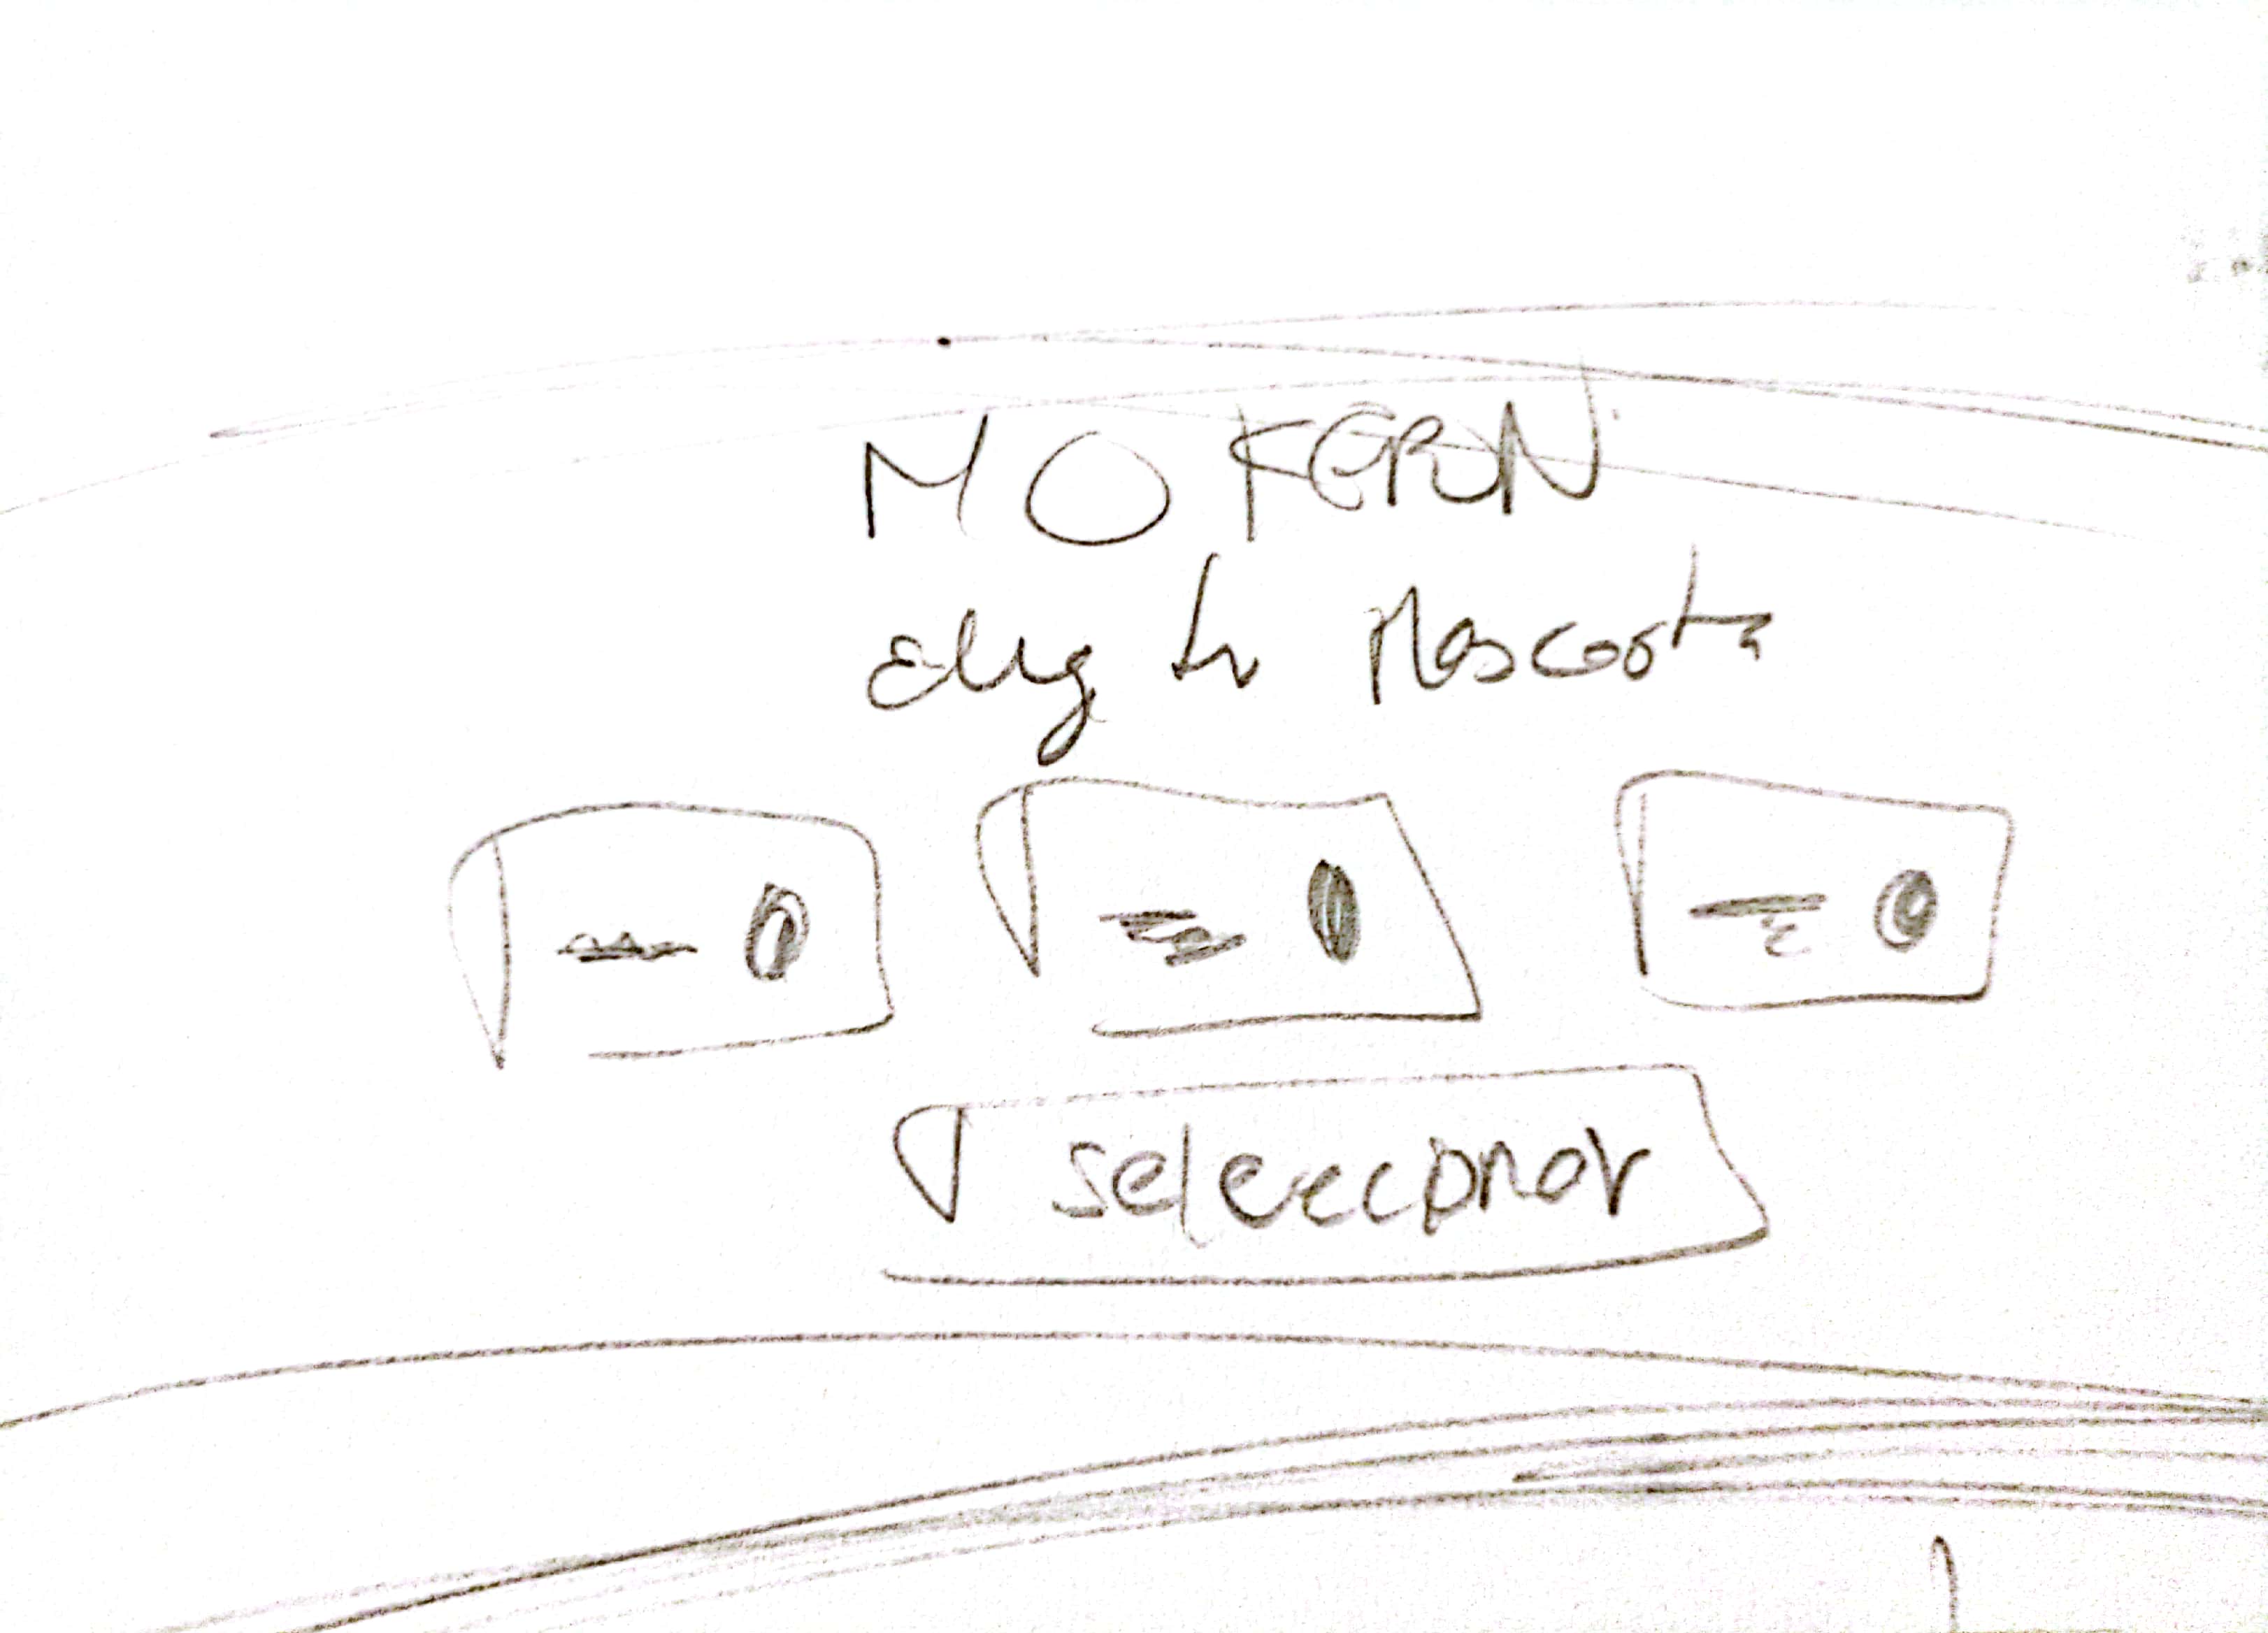 MOKERN
elig tu Mascota
seleccionar